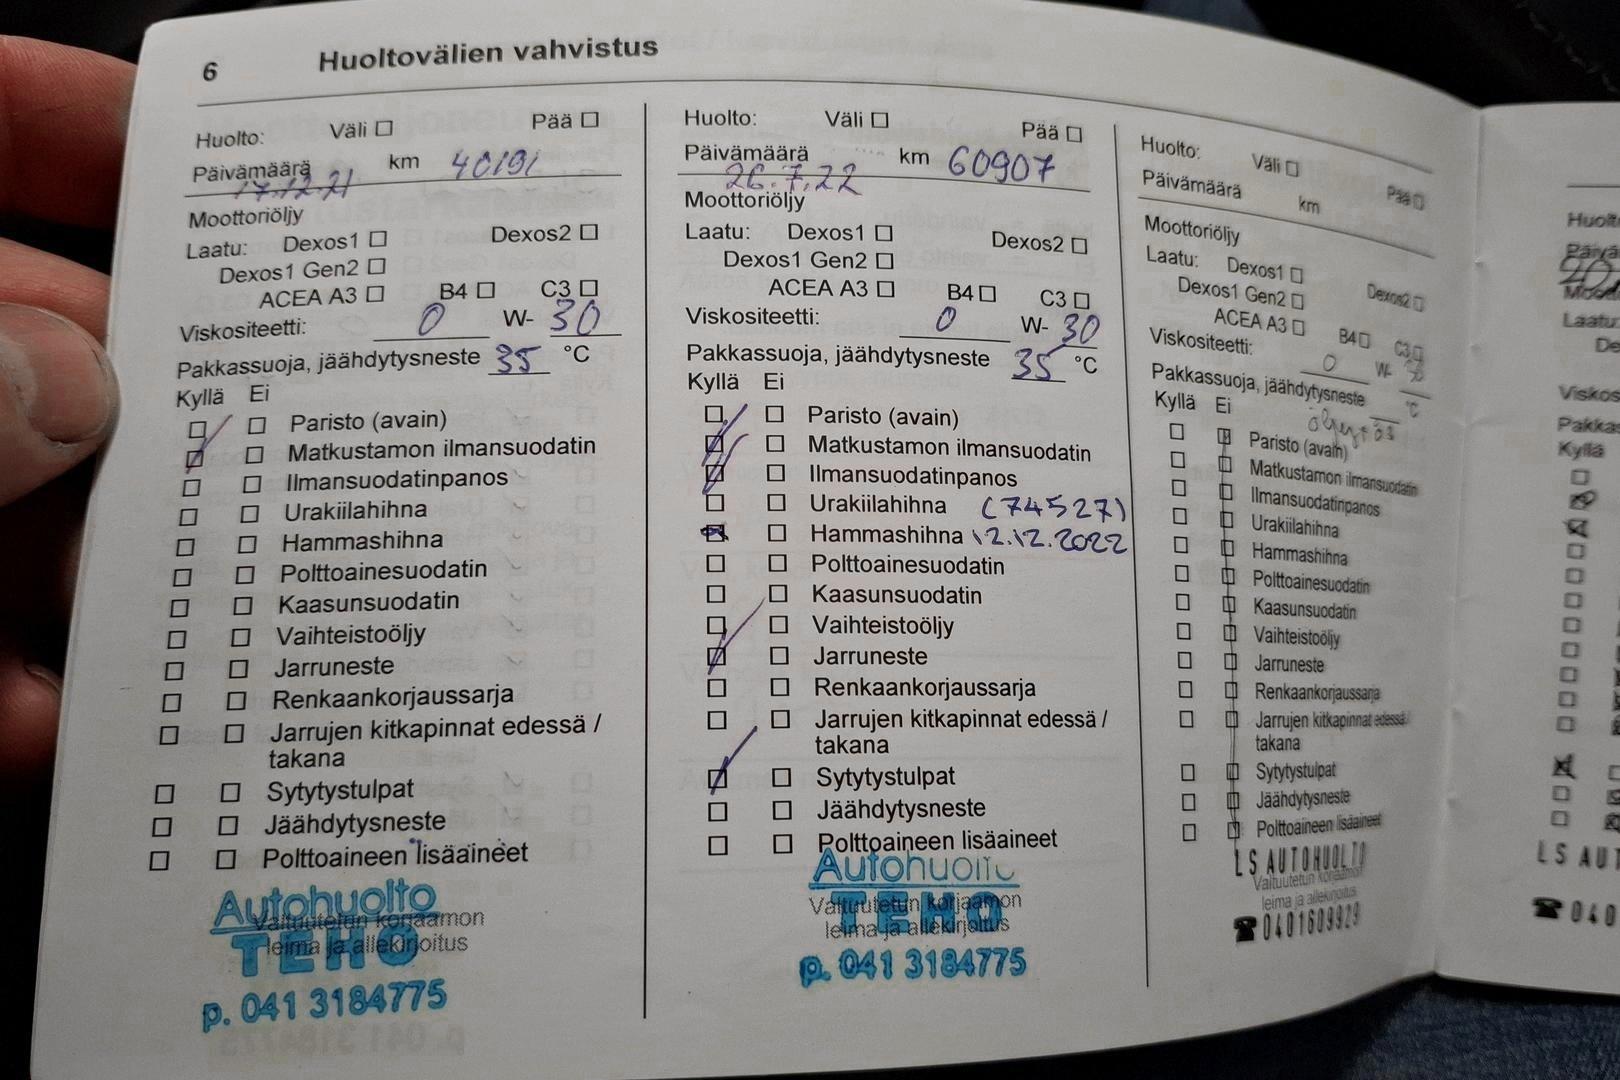 6 Huoltovälien vahvistus
Huolto: Väli Pää
Päivämäärä km 40191
17.12.21
Moottoriöljy
Laatu: Dexos1 Dexos2
Dexos1 Gen2
ACEA A3 B4 C3
Viskositeetti: 0 W- 30
Pakkassuoja, jäähdytysneste 35 °C
Kyllä Ei
Paristo (avain)
Matkustamon ilmansuodatin
Ilmansuodatinpanos
Urakiilahihna
Hammashihna
Polttoainesuodatin
Kaasunsuodatin
Vaihteistoöljy
Jarruneste
Renkaankorjaussarja
Jarrujen kitkapinnat edessä /
takana
Sytytystulpat
Jäähdytysneste
Polttoaineen lisäaineet
Autohuolto
Valtuutetun korjaamon
TEHO
leima ja allekirjoitus
p. 041 3184775
Huolto: Väli Pää
Päivämäärä km 60907
26.7.22
Moottoriöljy
Laatu: Dexos1 Dexos2
Dexos1 Gen2
ACEA A3 B4 C3
Viskositeetti: 0 W- 30
Pakkassuoja, jäähdytysneste 35 °C
Kyllä Ei
Paristo (avain)
Matkustamon ilmansuodatin
Ilmansuodatinpanos
Urakiilahihna (74527)
Hammashihna 12.12.2022
Polttoainesuodatin
Kaasunsuodatin
Vaihteistoöljy
Jarruneste
Renkaankorjaussarja
Jarrujen kitkapinnat edessä /
takana
Sytytystulpat
Jäähdytysneste
Polttoaineen lisäaineet
Autohuolto
Valtuutetun korjaamon
TEHO
leima ja allekirjoitus
p. 041 3184775
Huolto: Väli Pää
Päivämäärä km
Moottoriöljy
Laatu: Dexos1 Dexos2
Dexos1 Gen2
ACEA A3 B4 C3
Viskositeetti: 0 W- 30
Pakkassuoja, jäähdytysneste °C
Kyllä Ei
Paristo (avain)
Matkustamon ilmansuodatin
Ilmansuodatinpanos
Urakiilahihna
Hammashihna
Polttoainesuodatin
Kaasunsuodatin
Vaihteistoöljy
Jarruneste
Renkaankorjaussarja
Jarrujen kitkapinnat edessä /
takana
Sytytystulpat
Jäähdytysneste
Polttoaineen lisäaineet
LS AUTOHUOLTO
Valtuutetun korjaamon
leima ja allekirjoitus
☎ 0401609929
Laatu:
Kyllä
LS AUT
☎ 040